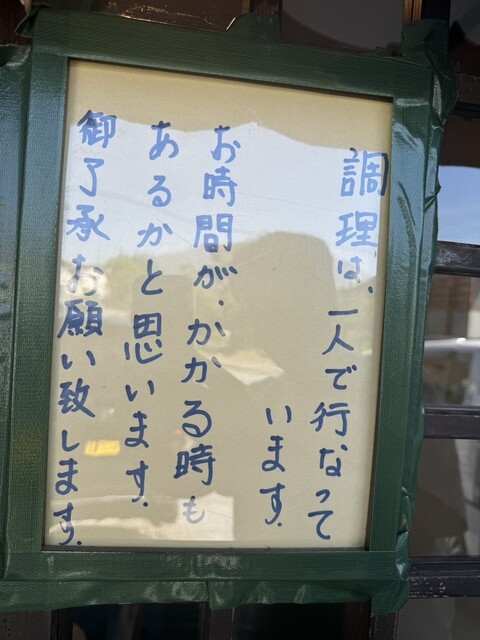 調理は、一人で行なって
います.
お時間が、かかる時も
あるかと思います.
御了承お願い致します.